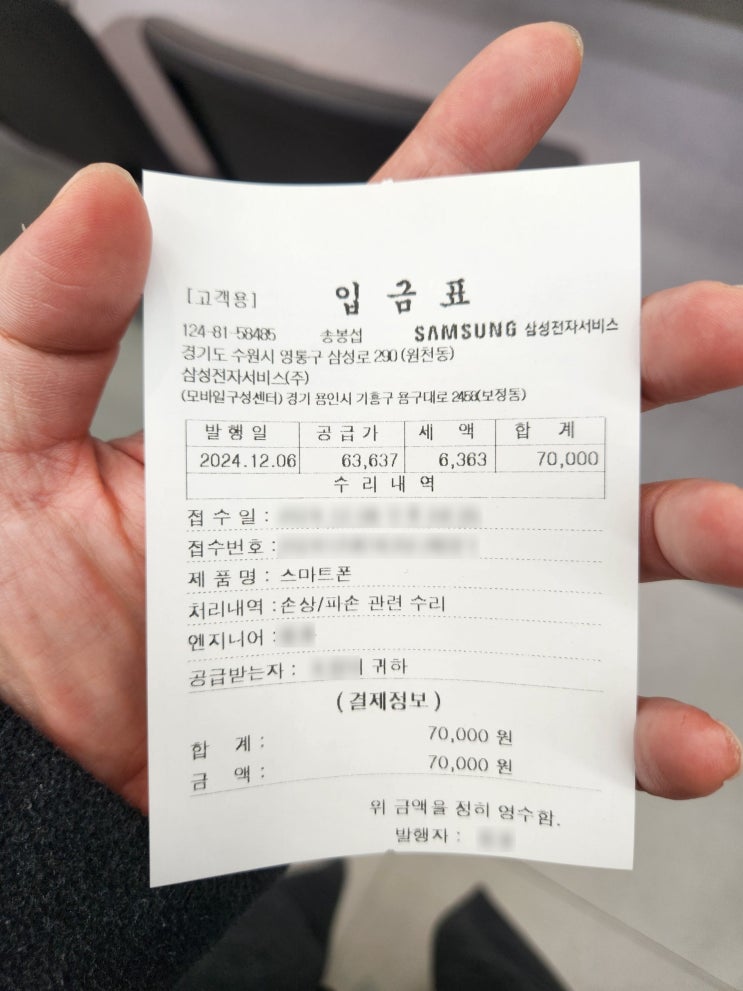 [고객용] 입 금 표
124-81-58485 송봉섭 SAMSUNG 삼성전자서비스
경기도 수원시 영통구 삼성로 290 (원천동)
삼성전자서비스(주)
(모바일구성센터) 경기 용인시 기흥구 용구대로 2458(보정동)
발 행 일 공 급 가 세 액 합 계
2024.12.06 63,637 6,363 70,000
수 리 내 역
접 수 일 :
접수번호 :
제 품 명 : 스마트폰
처리내역 : 손상/파손 관련 수리
엔지니어 :
공급받는자 : 귀하
(결제정보)
합 계 : 70,000 원
금 액 : 70,000 원
위 금액을 정히 영수함.
발행자 :